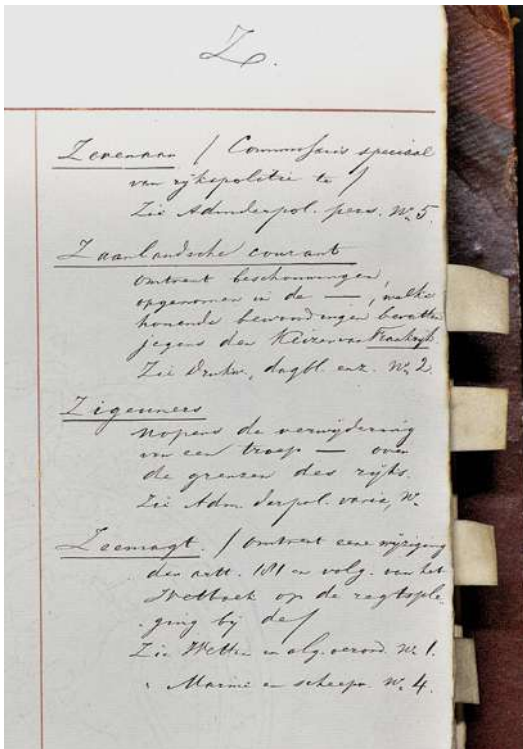 Z.
Zevenaar / Commissaris speciaal
van rijkspolitie te /
Zie Adm. der pol. pers. No 5.
Zaanlandsche courant
omtrent beschouwingen,
opgenomen in de —, welke
honende bewoordingen bevatten
jegens den Keizer van Frankrijk.
Zie Drukw., dagbl. enz. No 2.
Zigeuners
nopens de verwijdering
van een troep — over
de grenzen des rijks.
Zie Adm. der pol. varia, No
Zeemagt. / omtrent eene wijziging
der artt. 181 en volg. van het
Wetboek op de regtsple-
ging bij de /
Zie Wetten en alg. verord. No 1.
" Marine en scheepv. No 4.